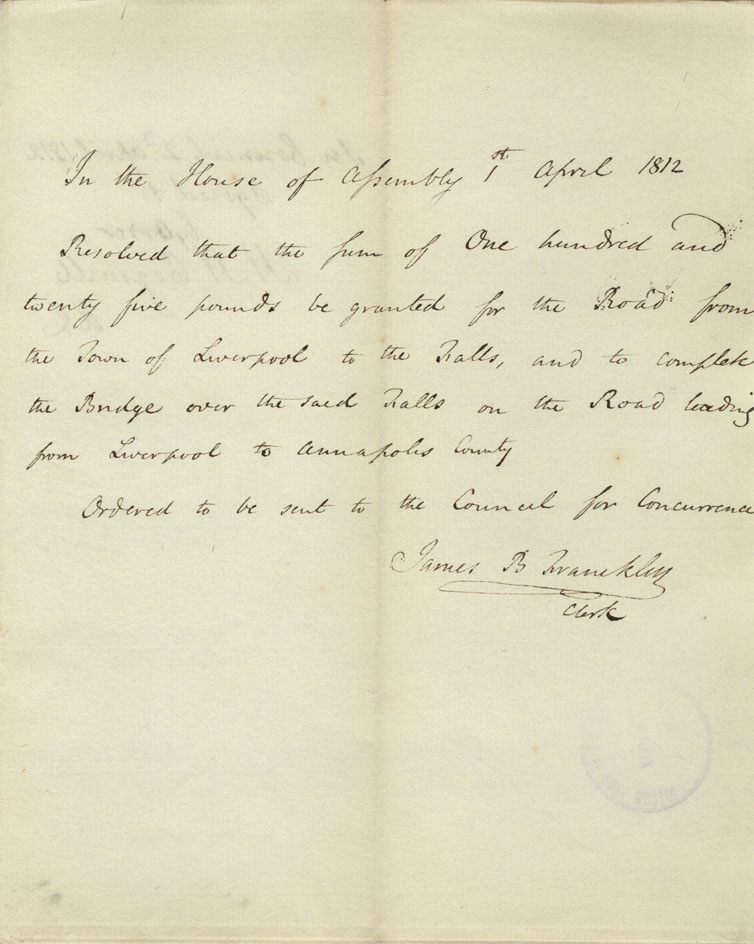 In the House of Assembly 1st April 1812
Resolved that the sum of One hundred and
twenty five pounds be granted for the Road from
the Town of Liverpool to the Falls, and to complete
the Bridge over the said Falls on the Road leading
from Liverpool to Annapolis County
Ordered to be sent to the Council for Concurrence
James B Franklin
Clerk